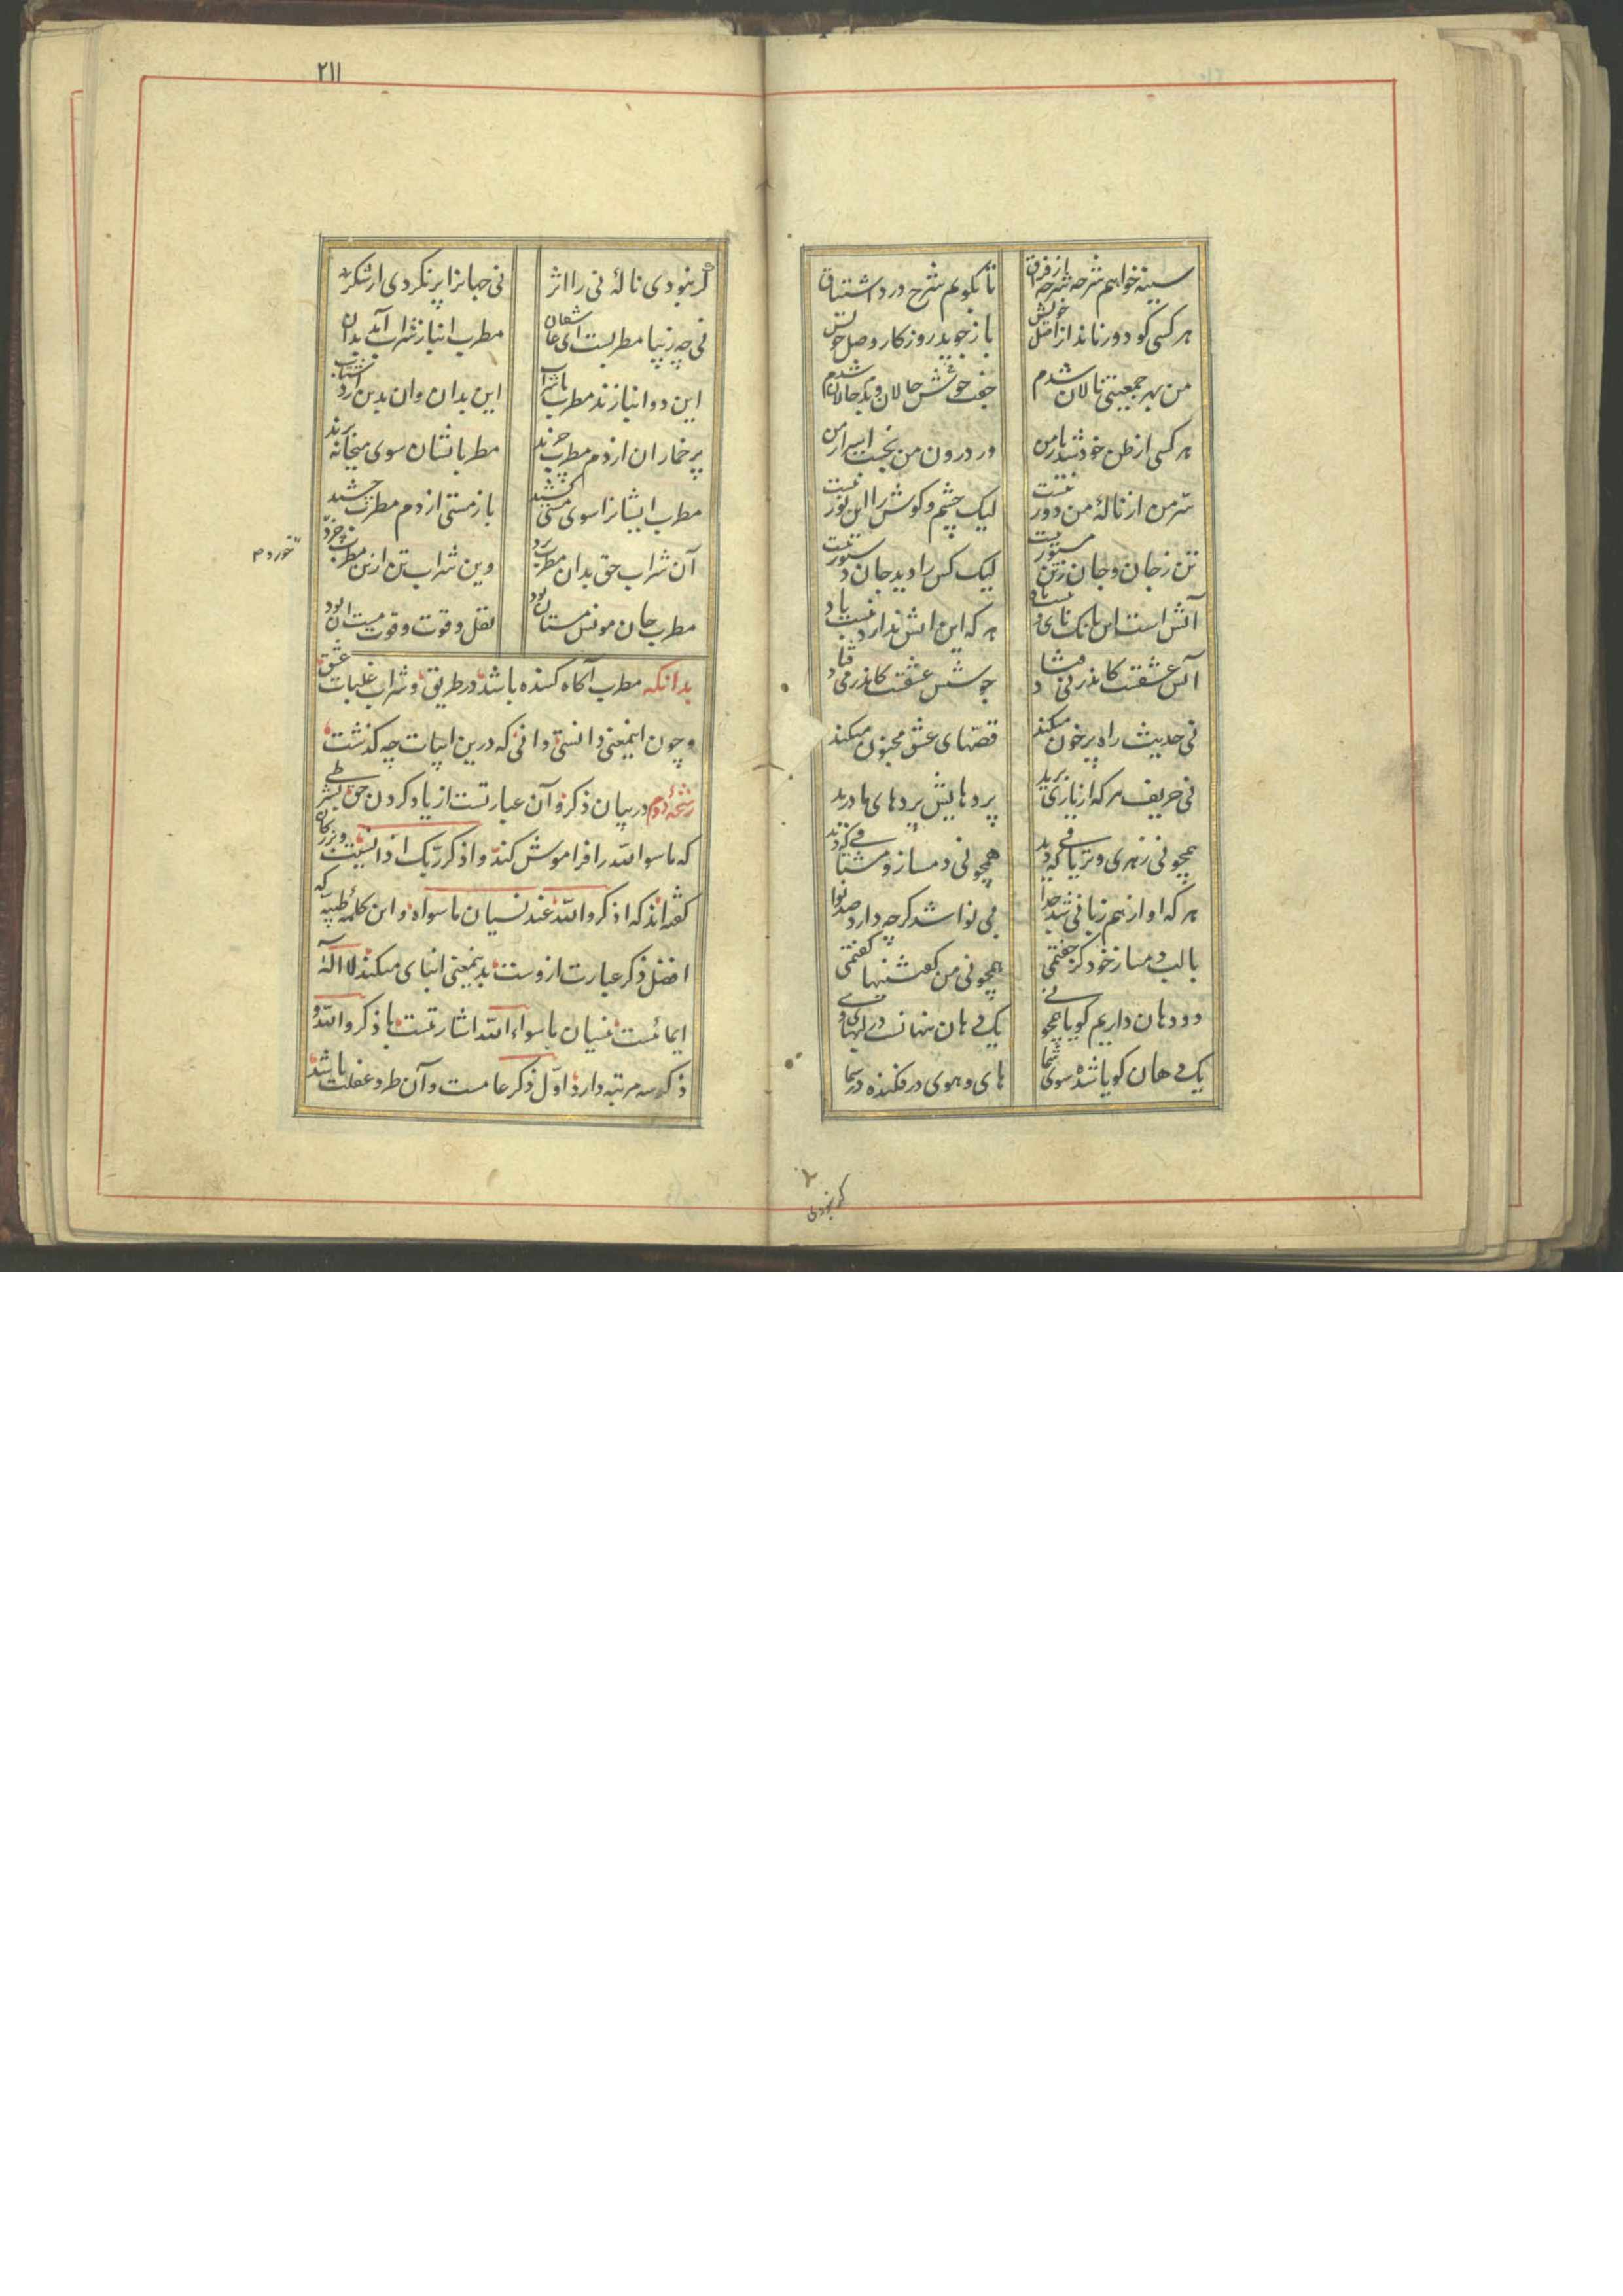 سینه خواهم شرحه شرحه از فراق تا بگویم شرح درد اشتیاق
هر کسی کو دور ماند از اصل خویش باز جوید روزکار وصل خویش
من بهر جمعیتی نالان شدم جفت خوش حالان و بد حالان شدم
هر کسی از ظن خود شد یار من ور درون من نجست اسرار من
سرّ من از نالهٔ من دور نیست لیک چشم و کوش را این نور نیست
تن ز جان و جان ز تن مستور نیست لیک کس را دید جان دستور نیست
آتش است این بانک نای و نیست باد هر که این اتش ندارد نیست باد
آتش عشقست کاندر نی فتاد جوشش عشقست کاندر می فتاد
نی حدیث راه پر خون میکند قصّهای عشق مجنون میکند
نی حریف هر که از یاری برید پردهایش پردهای ما درید
همچو نی زهری و تریاقی که دید همچو نی دمساز و مشتاقی که دید
هر که او از هم زبانی شد جدا بی نوا شد کرچه دارد صد نوا
با لب دمساز خود کر جفتمی همچو نی من کفتنیها کفتمی
دو دهان داریم کویا همچو نی یک دهان پنهانست در لبهای وی
یک دهان کویا شده سوی شما های و هوی در فکنده در سما
کر نبودی
۲۱۱
کر نبودی نالهٔ نی را اثر نی جهانرا پر نکردی از شکر
نی چه زیبا مطربست ای عاشقان مطرب انباز شراب آمد بدان
این دو انبازند مطرب با شراب این بدان وان بدین آرد شتاب
پر خماران از دم مطرب چرند مطربانشان سوی میخانه برند
مطرب ایشانرا سوی مستی کشید باز مستی از دم مطرب چشید
آن شراب حق بدان مطرب برد وین شراب تن ازین مطرب چرد
خوردم
مطرب جان مونس مستان بود نقل و قوت و قوت مست ان بود
بدانکه مطرب آکاه کننده باشد در طریق و شراب غلبات عشق
و چون اینمعنی دانستی دانی که درین ابیات چه کذشت
رشحهٔ دوم در بیان ذکر و آن عبارتست از یاد کردن حق بشرطی
که ما سوا الله را فراموش کند و اذکر ربک اذا نسیت و بزرکان
کفته‌اند که اذکروا الله عند نسیان ما سواه و این کلمهٔ طیبه که
افضل ذکر عبارت ازوست بدینمعنی انبای میکند لا اله
ایمائست بنسیان ما سواء الله اشارتست با ذکروا الله و
ذکر سه مرتبه دارد اوّل ذکر عامست و آن طرد غفلت باشد